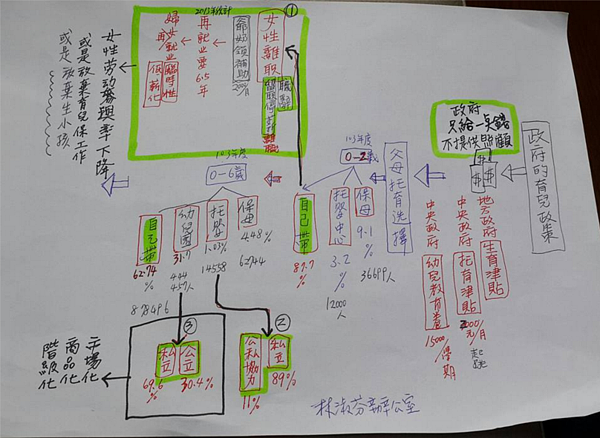 政府的育兒政策
政府
只給一點錢
不提供照顧
地方政府 生育津貼
中央政府 托育津貼
2000元/月
起跳
中央政府 幼兒教育券
15000/學期
父母托育選擇
103年度
0-2歲
保母
9.1%
36699人
托嬰中心
3.2%
12000人
自己帶
87.7%
103年度
0-6歲
保母
4.48%
62744
托嬰
1.03%
14558
幼兒園
31.7
444
457人
自己帶
62.74%
878496
①
女性離職
2013年統計
再就業要6.5年
婦女就業
臨時性
低薪化
女性勞動參與率下降
或是放棄育兒保工作
或是放棄生小孩
②
私立
89%
公私協力
11%
③
公立
30.4%
私立
69.6%
市場化
商品化
階級化
林淑芬辦公室